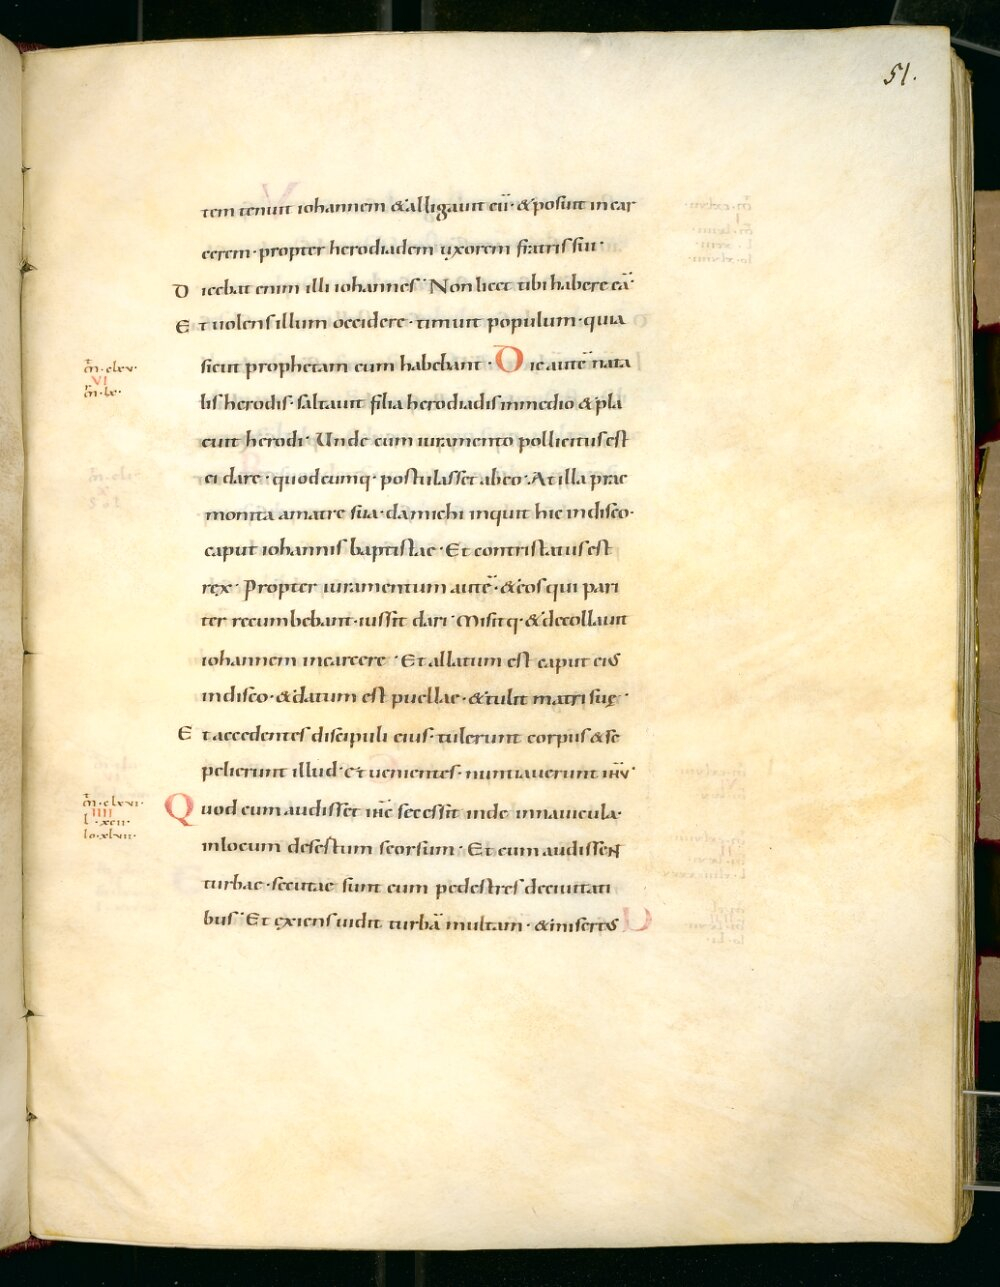 51.
tem tenuit iohannem & alligauit eū· & posuit in car
cerem· propter herodiadem uxorem fratris sui·
Dicebat enim illi iohannes· Non licet tibi habere eā·
Et uolens illum occidere· timuit populum· quia
sicut prophetam eum habebant· Die autē nata
m̄· clxv·
VI
m̄r· lx·
lis herodis· saltauit filia herodiadis in medio & pla
cuit herodi· Unde cum iuramento pollicitus est
ei dare· quodcumq· postulasset ab eo· At illa prae
monita a matre sua· da michi inquit hic in disco·
caput iohannis baptistae· Et contristatus est
rex· Propter iuramentum autē· & eos qui pari
ter recumbebant· iussit dari· Misitq· & decollauit
iohannem in carcere· Et allatum est caput eius
in disco· & datum est puellae· & tulit matri suę·
Et accedentes discipuli eius· tulerunt corpus & se
pelierunt illud· et uenientes· nuntiauerunt ihū·
m̄· clxvi·
IIII
l·xcii·
Io·xlvii·
Quod cum audisset ihc̄ secessit inde in nauicula·
in locum desertum seorsum· Et cum audissent
turbae· secutae sunt eum pedestres de ciuitati
bus· Et exiens uidit turbā multam· & misertus